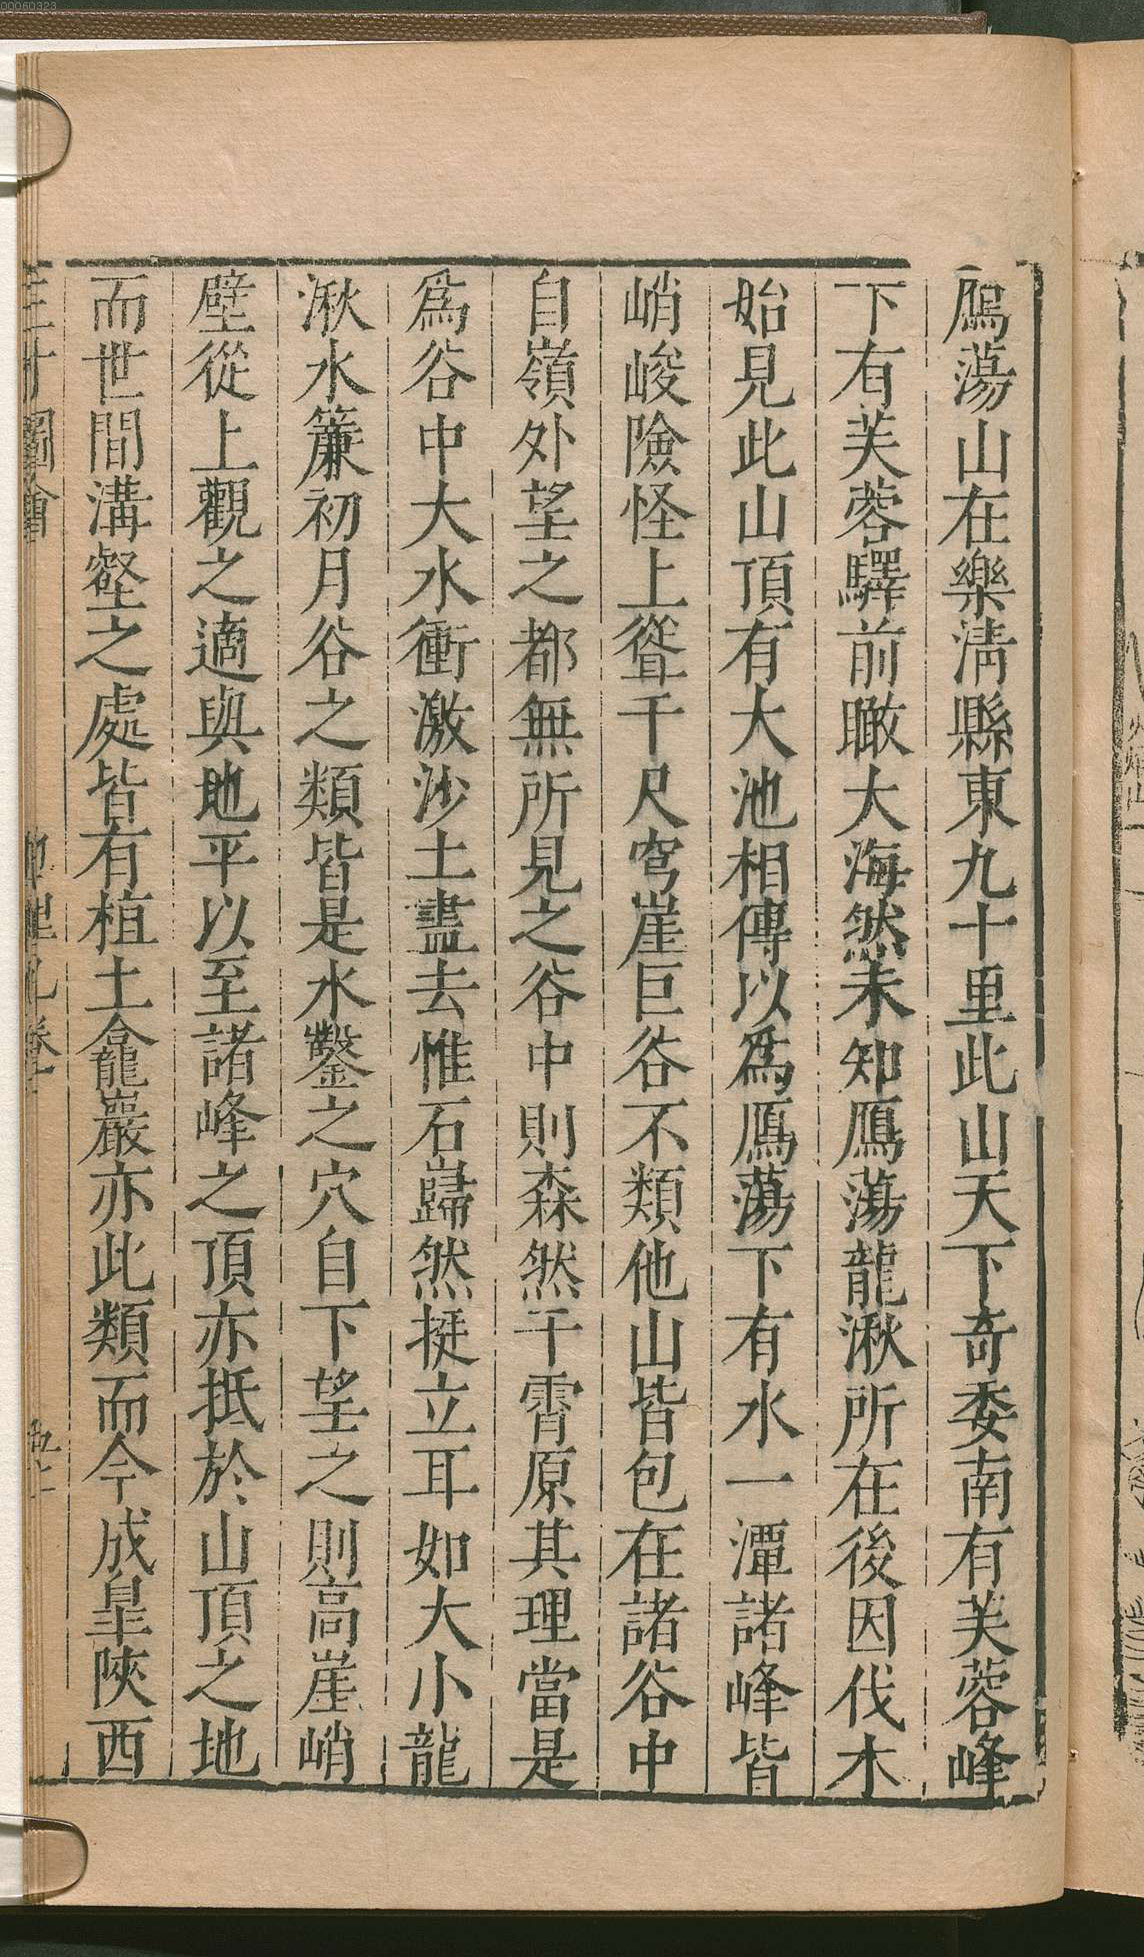 鴈蕩山在樂清縣東九十里此山天下奇委南有芙蓉峰
下有芙蓉驛前瞰大海然未知鴈蕩龍湫所在後因伐木
始見此山頂有大池相傳以爲鴈蕩下有水一潭諸峰皆
峭峻險怪上聳千尺穹崖巨谷不類他山皆包在諸谷中
自嶺外望之都無所見之谷中則森然干霄原其理當是
爲谷中大水衝激沙土盡去惟石巋然挺立耳如大小龍
湫水簾初月谷之類皆是水鑿之穴自下望之則高崖峭
壁從上觀之適與地平以至諸峰之頂亦抵於山頂之地
而世間溝壑之處皆有植土龕巖亦此類而今成臯陝西
三才圖會 地理九卷
000060323